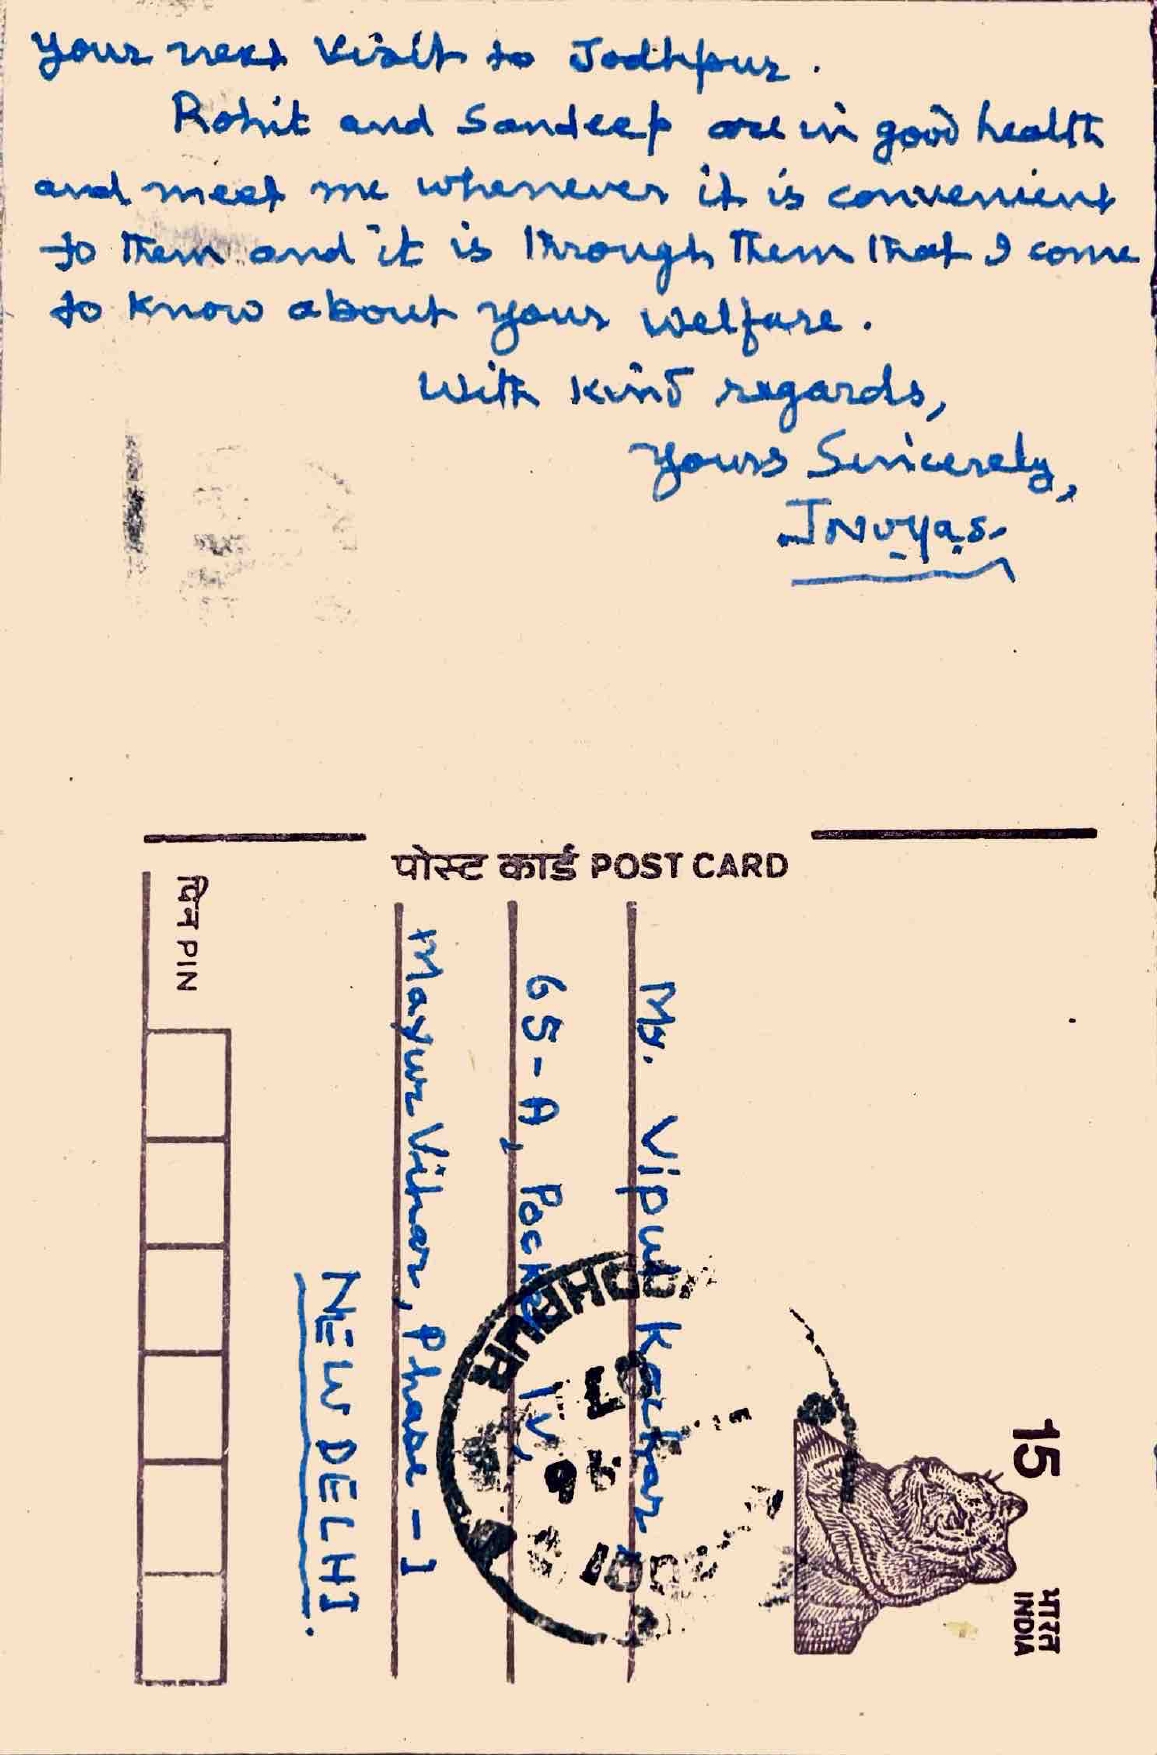 your next visit to Jodhpur.
Rohit and Sandeep are in good health
and meet me whenever it is convenient
to them and it is through them that I come
to know about your welfare.
With kind regards,
Yours Sincerely,
JNVyas.
पोस्ट कार्ड POST CARD
15
भारत
INDIA
Mr. Vipul Kochar
65-A, Pocket IV,
Mayur Vihar, Phase-1
NEW DELHI.
पिन PIN
JODHPUR